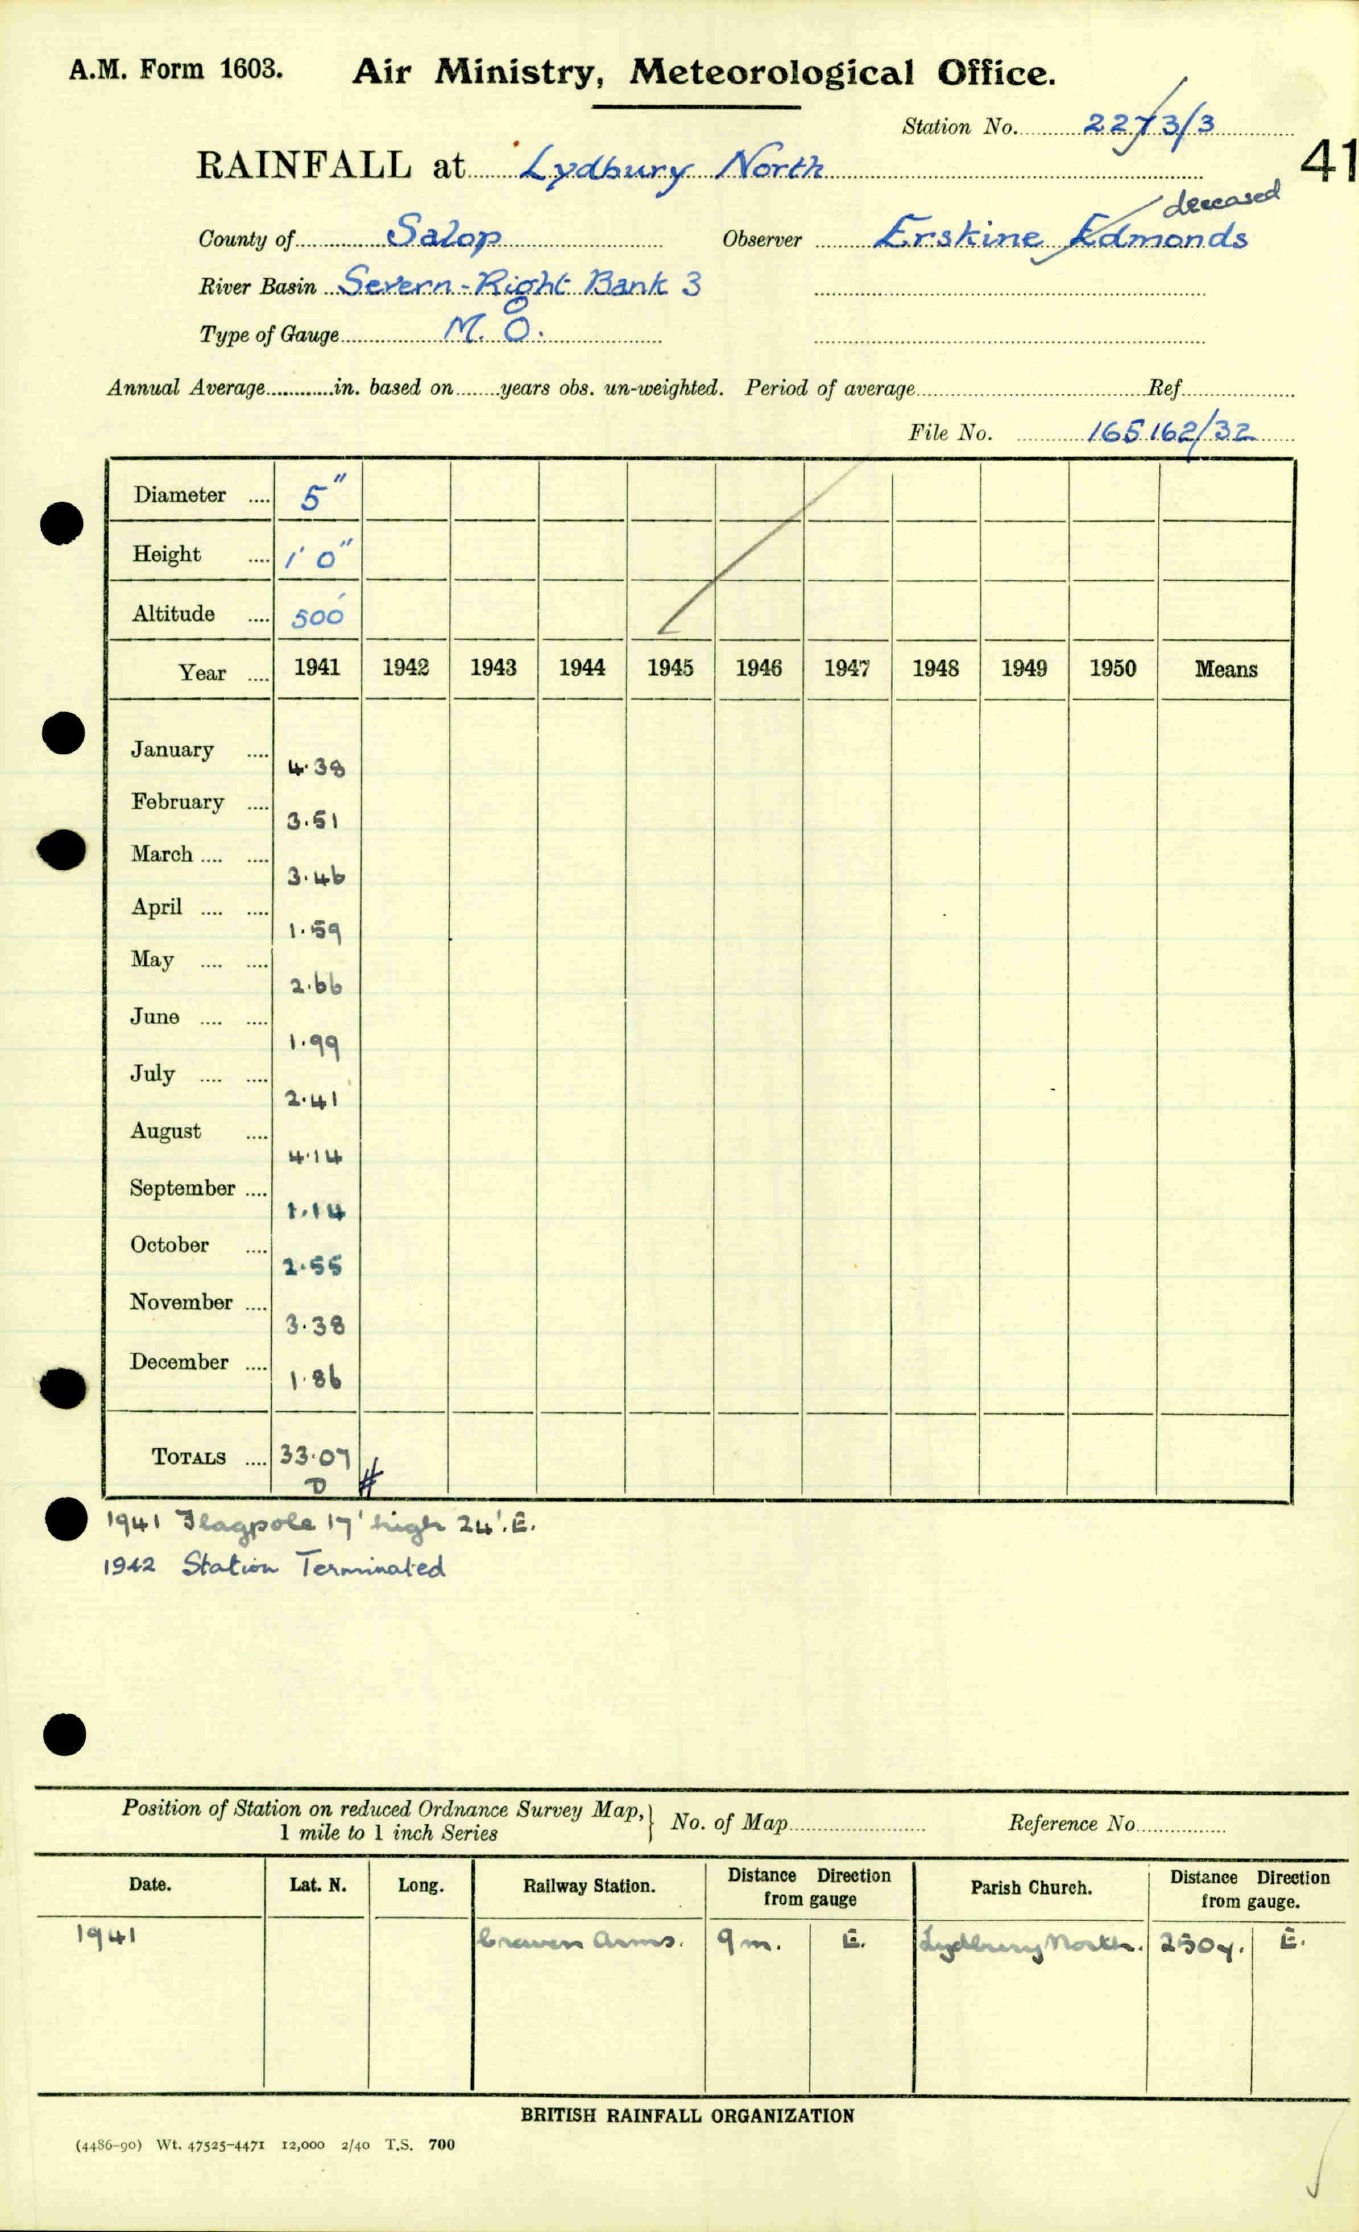 A.M. Form 1603. Air Ministry, Meteorological Office.
Station No. 2273/3
41
RAINFALL at Lydbury North
deceased
County of Salop Observer Erskine Edmonds
River Basin Severn-Right Bank 3
Type of Gauge M.O.
Annual Average............in. based on.......years obs. un-weighted. Period of average.......... Ref..........
File No. 165162/32
Diameter .... 5"
Height .... 1' 0"
Altitude .... 500'
Year .... 1941 1942 1943 1944 1945 1946 1947 1948 1949 1950 Means
January .... 4.38
February .... 3.51
March .... .... 3.46
April .... .... 1.59
May .... .... 2.66
June .... .... 1.99
July .... .... 2.41
August .... 4.14
September .... 1.14
October .... 2.55
November .... 3.38
December .... 1.86
TOTALS .... 33.07
D #
1941 Flagpole 17' high 24'. E.
1942 Station Terminated
Position of Station on reduced Ordnance Survey Map,} No. of Map.......... Reference No..........
1 mile to 1 inch Series
Date. Lat. N. Long. Railway Station. Distance Direction from gauge Parish Church. Distance Direction from gauge.
1941 Craven Arms. 9m. E. Lydbury North. 250y. E.
BRITISH RAINFALL ORGANIZATION
(4486-90) Wt. 47525-4471 12,000 2/40 T.S. 700